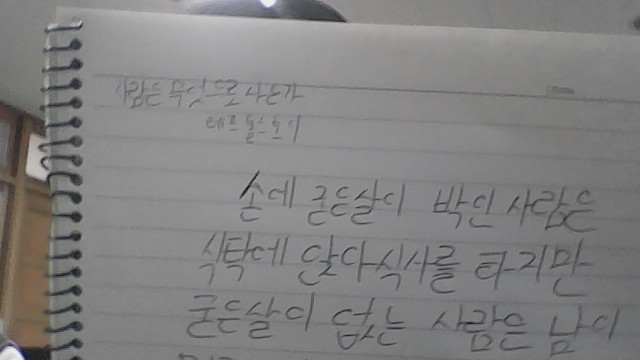 사람은 무엇으로 사는가
레프 톨스토이
손에 굳은살이 박인 사람은
식탁에 앉아 식사를 하지만
굳은살이 없는 사람은 남이